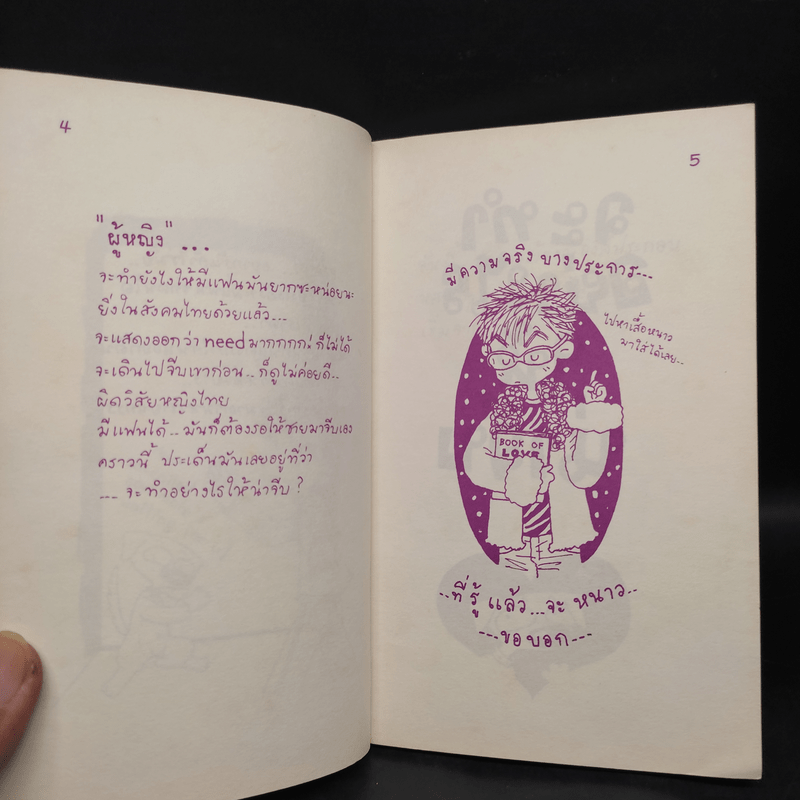 4
"ผู้หญิง" ...
จะทำยังไงให้มีแฟนมันยากซะหน่อยนะ
ยิ่งในสังคมไทยด้วยแล้ว...
จะแสดงออกว่า needมากกกก! ก็ไม่ได้
จะเดินไปจีบเขาก่อน...ก็ดูไม่ค่อยดี...
ผิดวิสัยหญิงไทย
มีแฟนได้...มันก็ต้องรอให้ชายมาจีบเอง
คราวนี้ ประเด็นมันเลยอยู่ที่ว่า
... จะทำอย่างไรให้น่าจีบ ?
5
มีความจริงบางประการ...
ไปหาเสื้อหนาว
มาใส่ได้เลย..
BOOK OF
LOVE
..ที่รู้ แล้ว...จะ หนาว..
---ขอบอก---